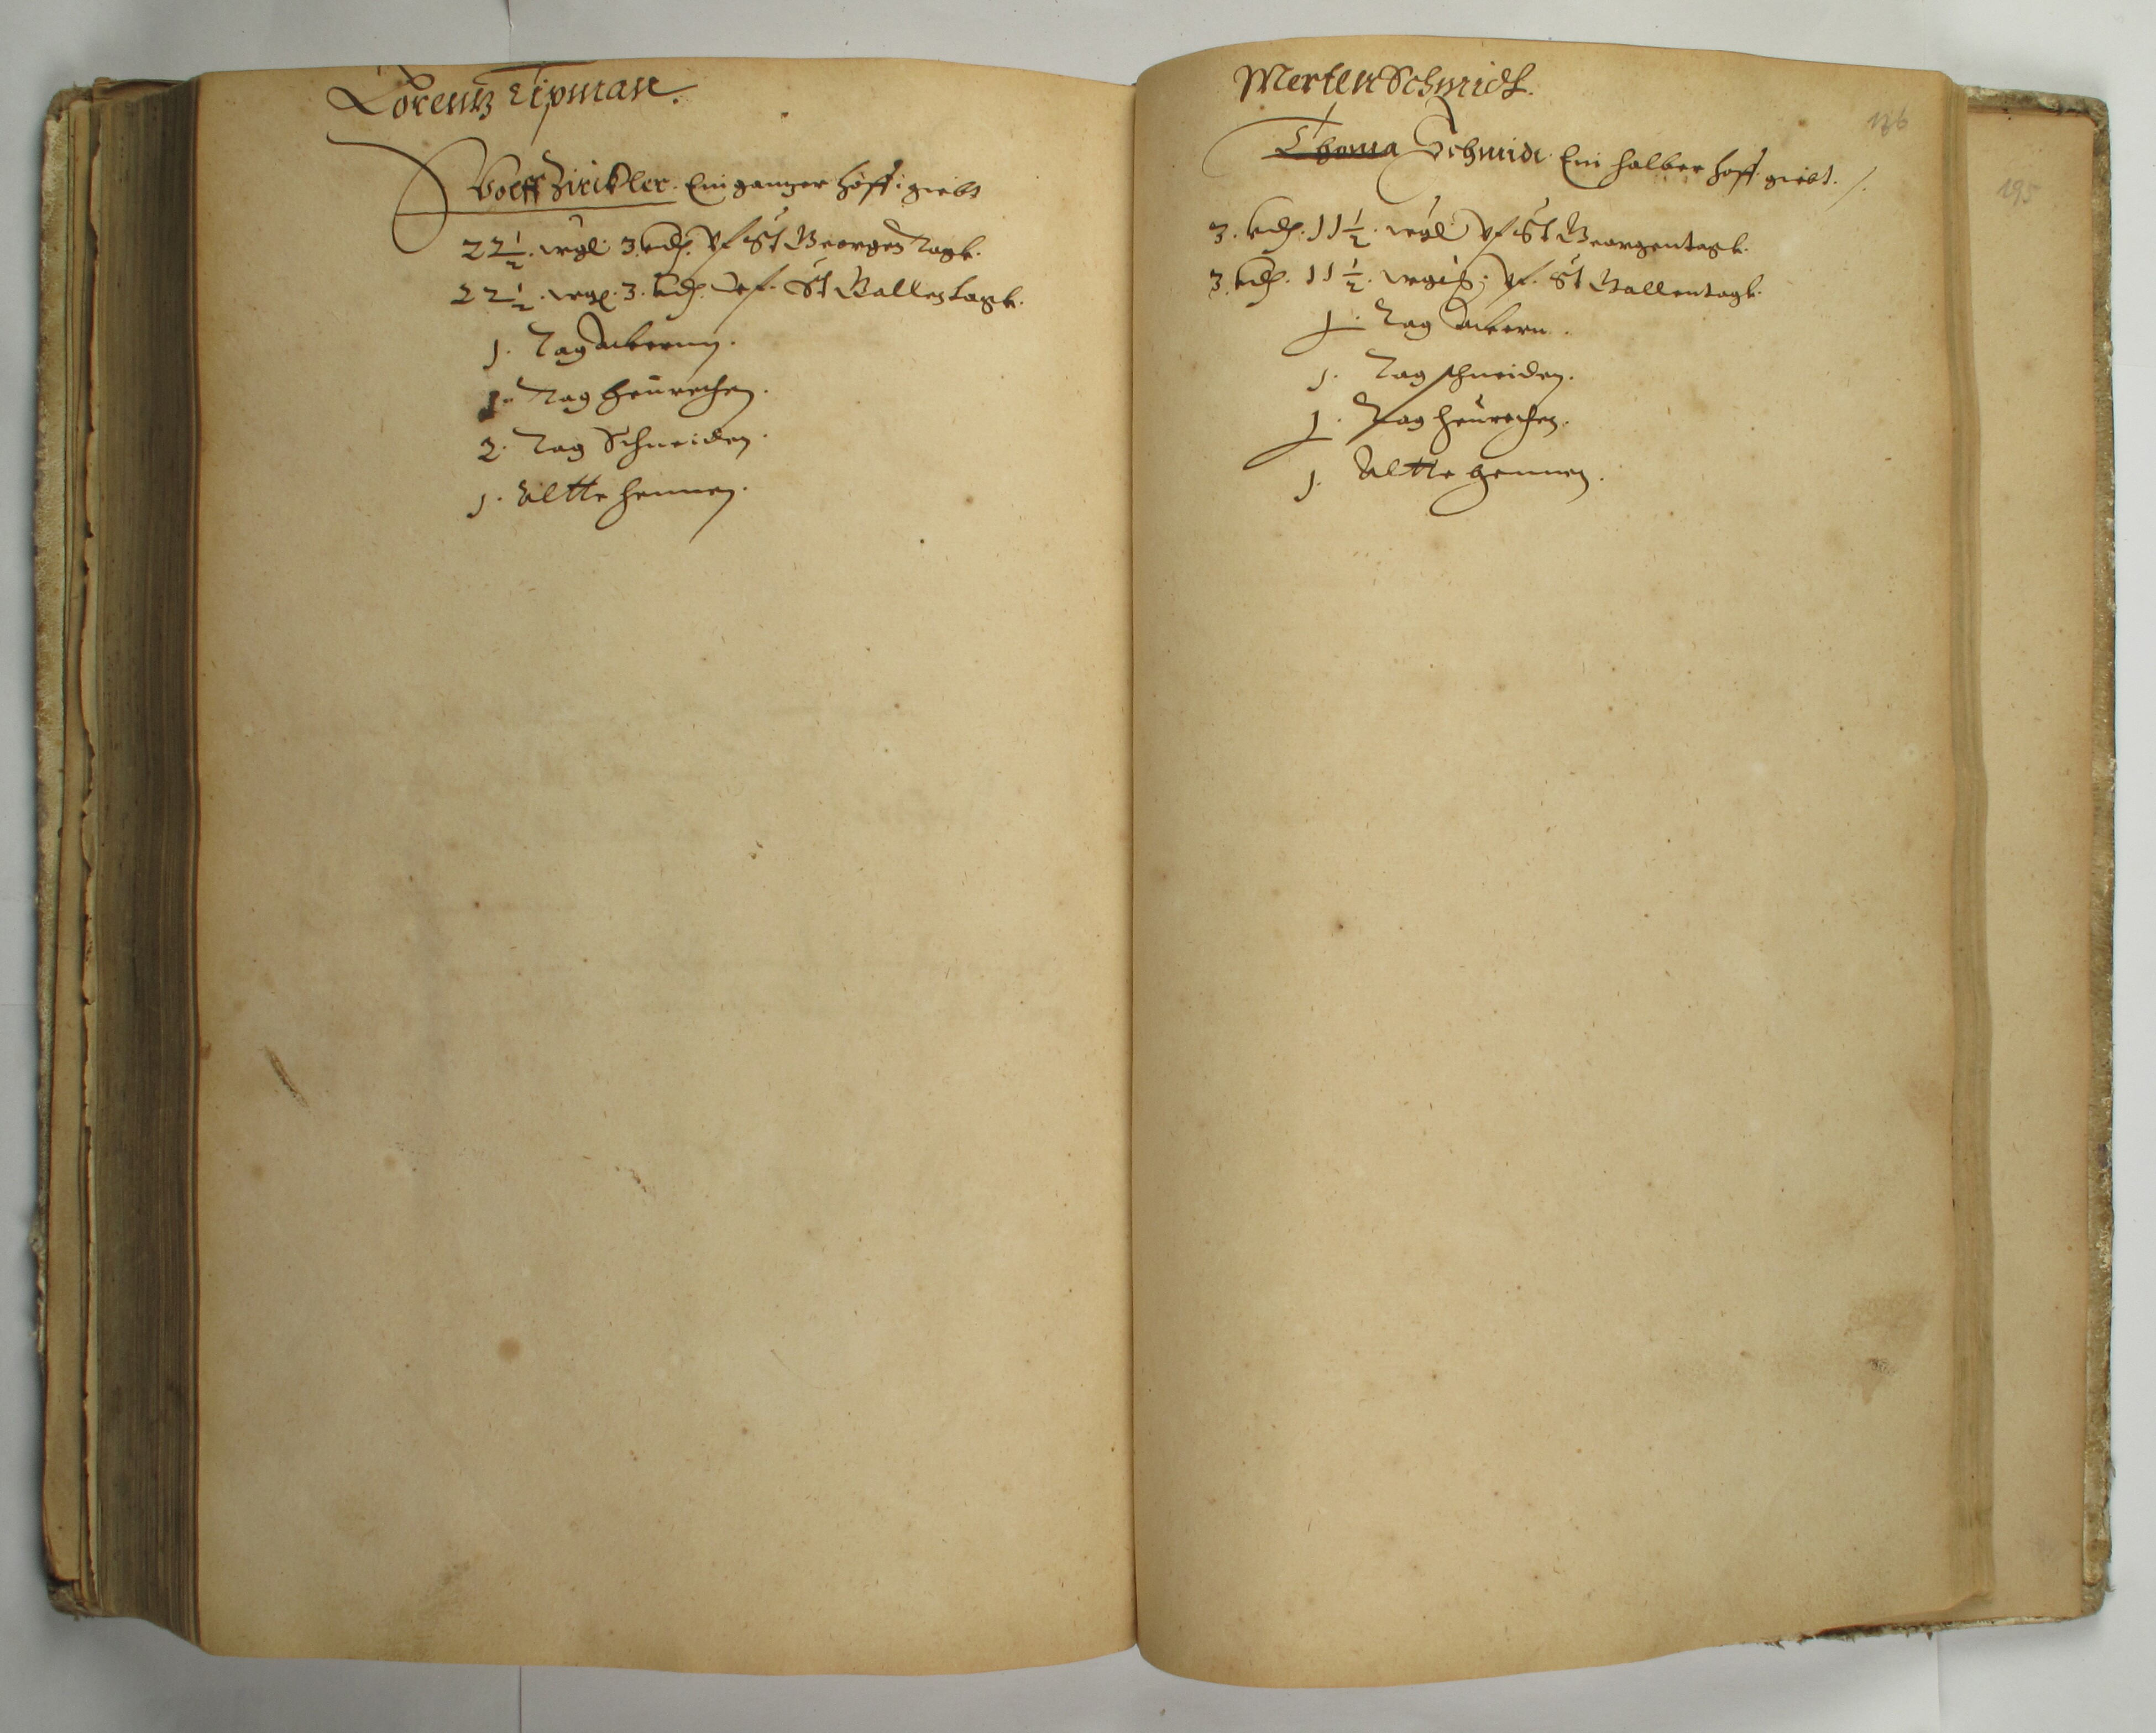 Lorentz Tipman.
Wolff Zirckler. Ein gantzer hoff: giebt
22½. wgl: 3. hl. vf St Georgen Tagk.
22½. wgl. 3. hl. vf. St Gallen tagk.
1. Tag Ackernn.
1. Tag heurechen.
2. Tag Schneiden.
1. Altte hennen.
Merten Schmidt.
Thoma Schmidt. Ein halber hoff. giebt. /.
3. 11½. wgl vf St Georgentagk.
3. 11½. vf. St Gallentagk.
1. Tag Ackern.
1. Tag schneiden.
1. Tag heurechen.
1. Altte hennen.
186
195